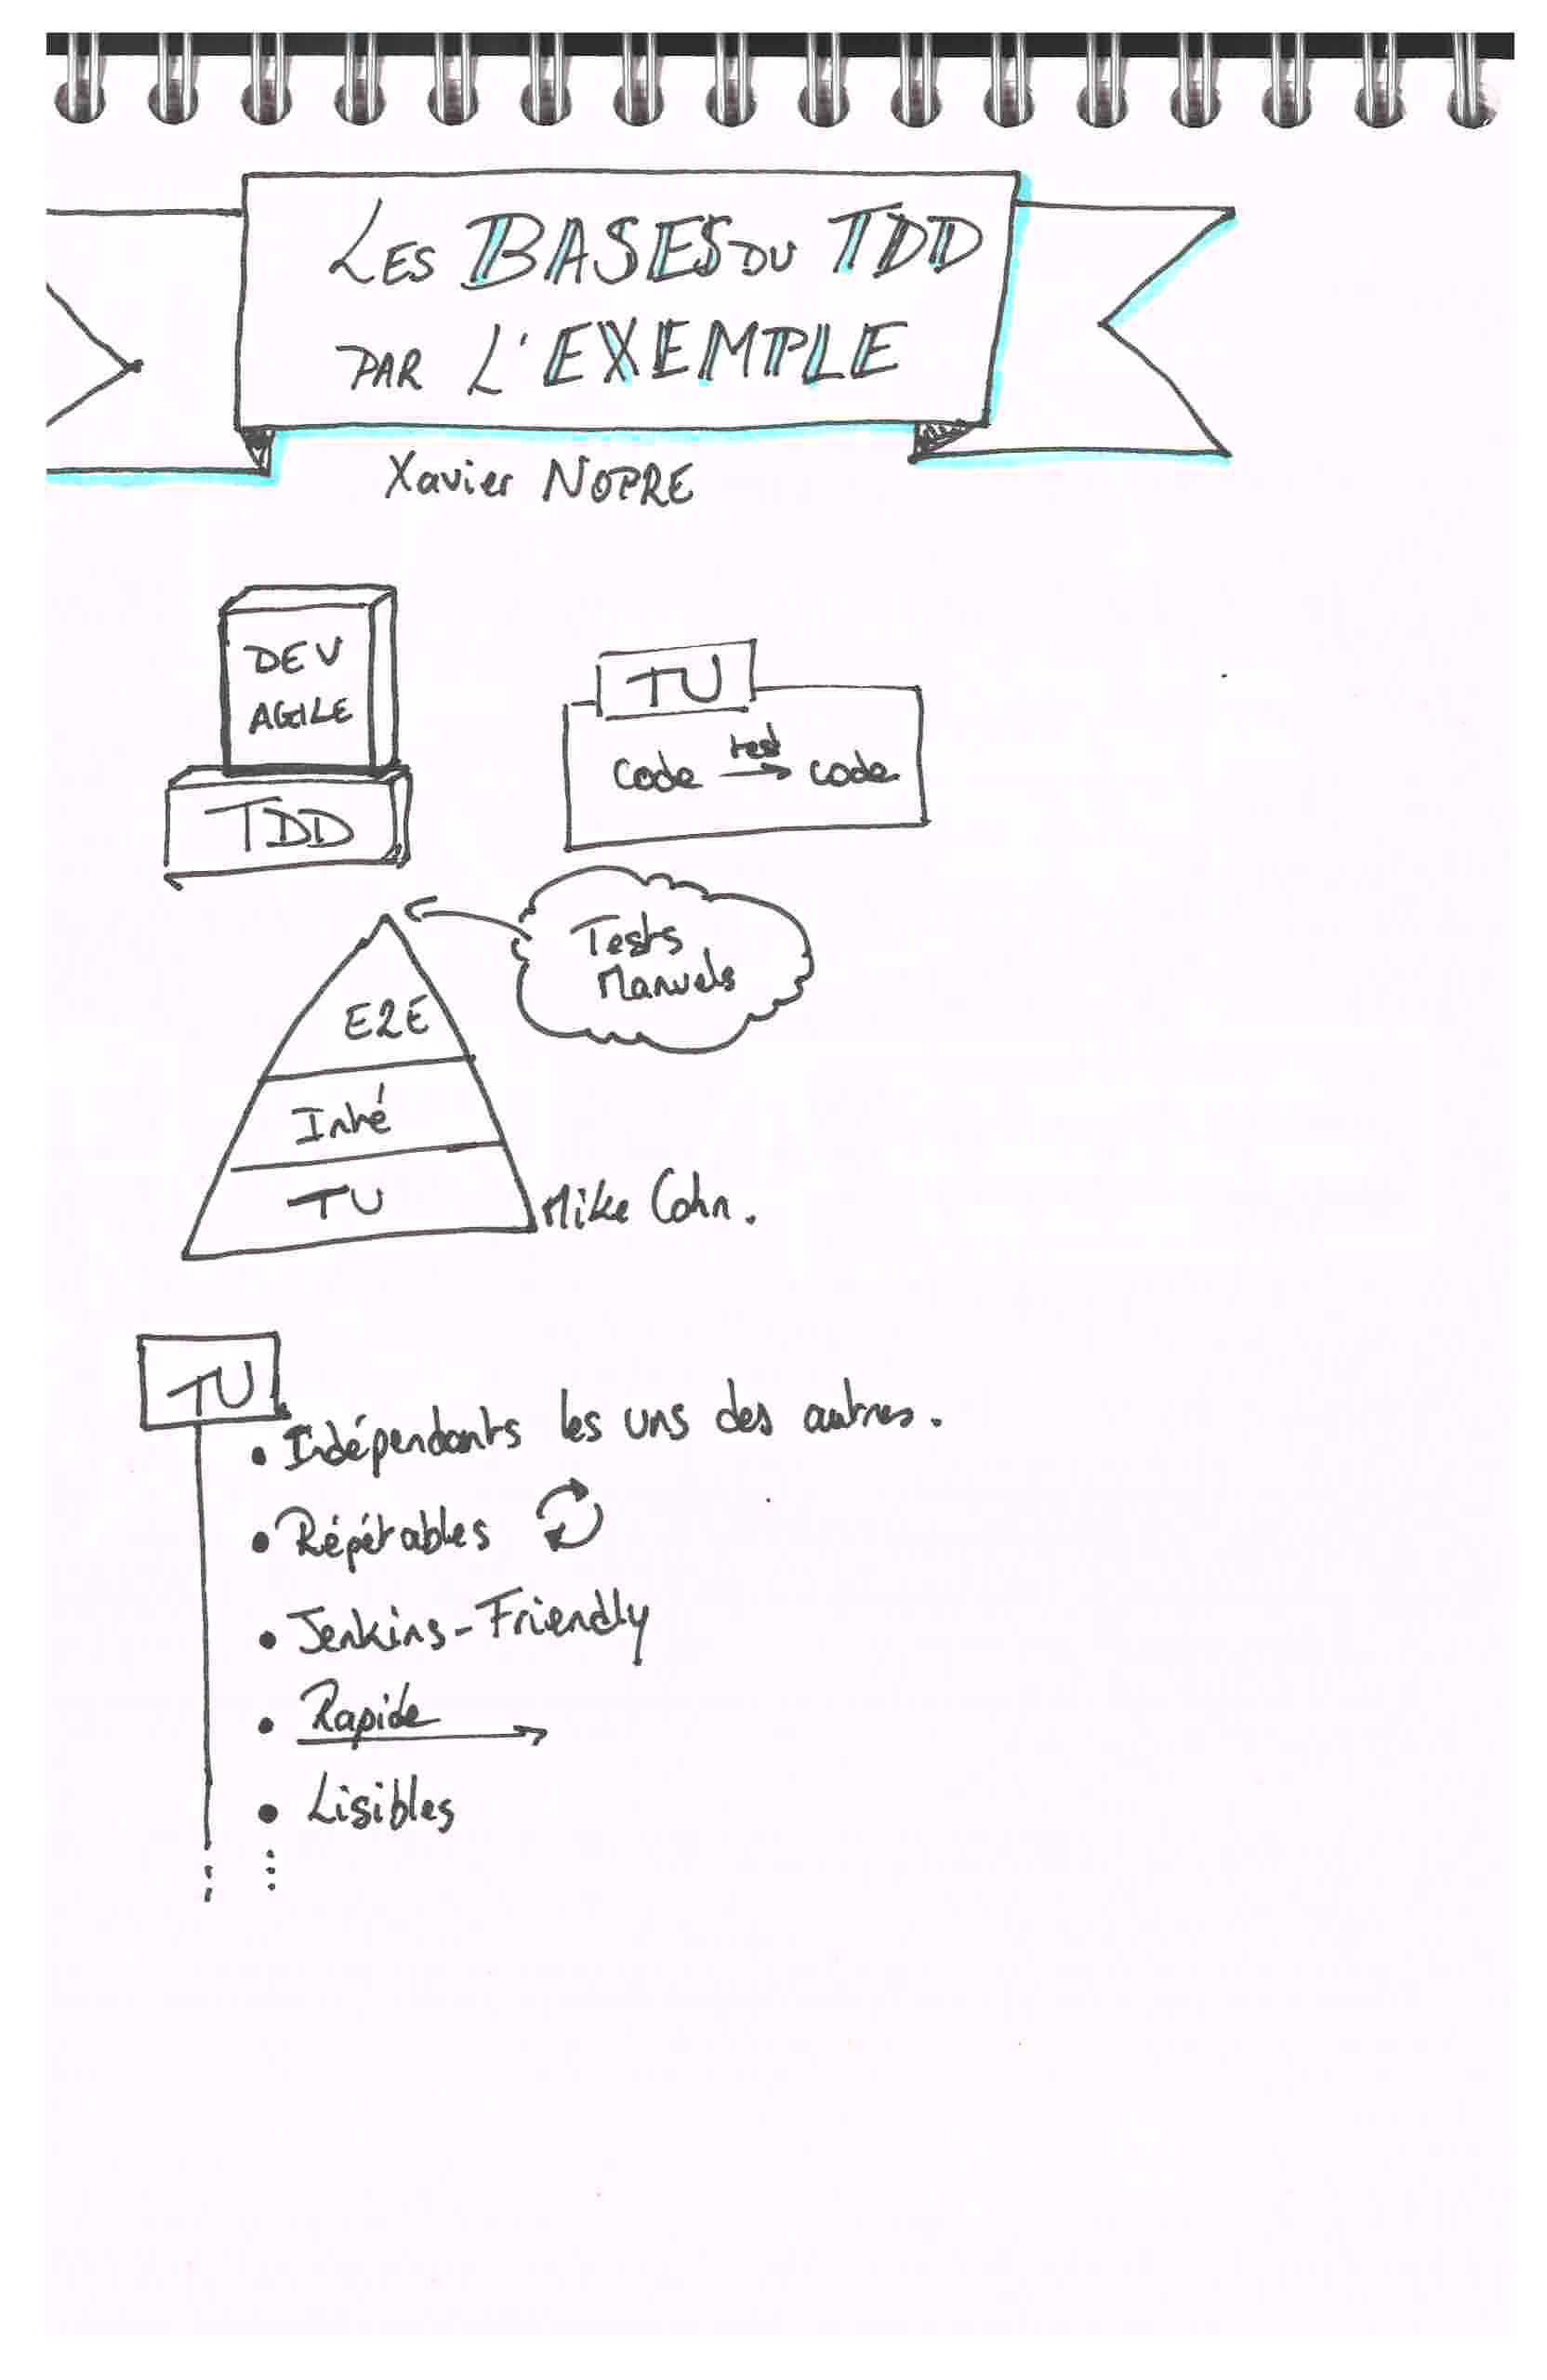 LES BASES DU TDD
PAR L'EXEMPLE
Xavier NOPRE
DEV
AGILE
TDD
TU
test
Code → code
Tests
Manuels
E2E
Inté
TU
Mike Cohn.
TU
• Indépendants les uns des autres.
• Répétables
• Jenkins-Friendly
• Rapide
• Lisibles